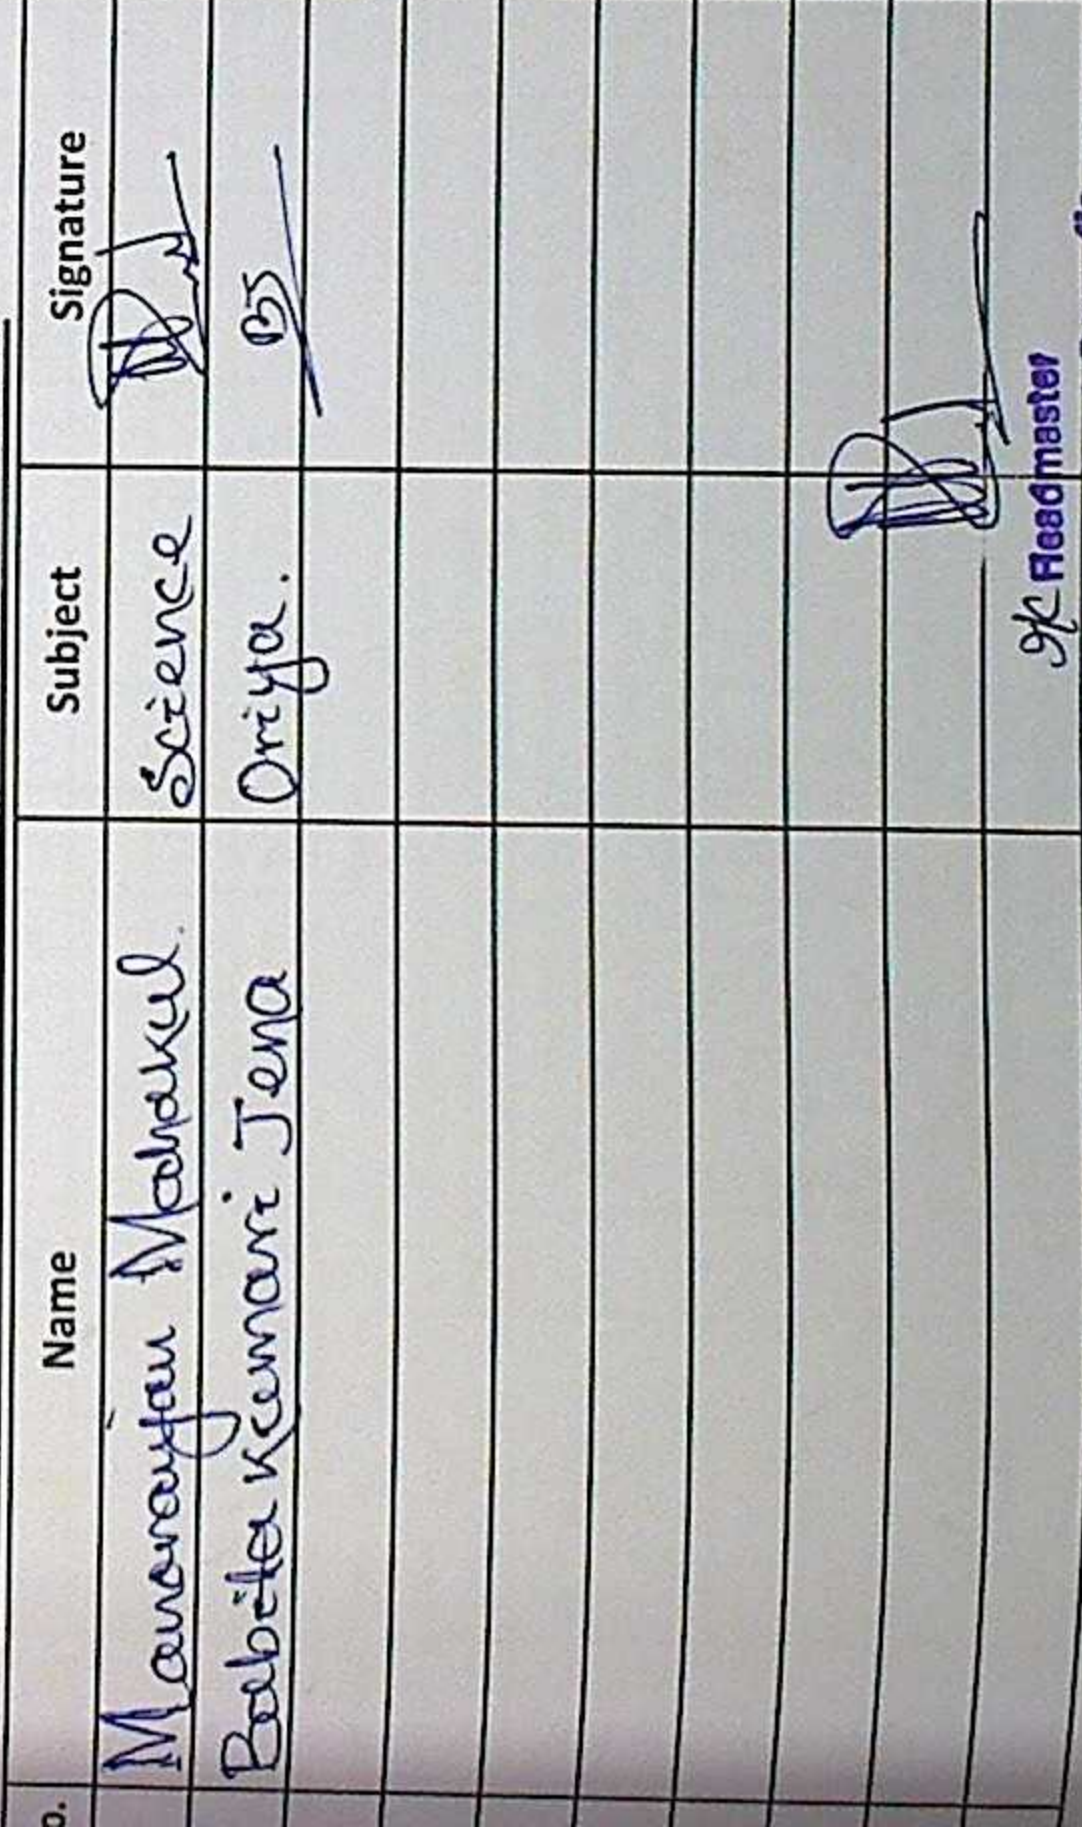 o. Name Subject Signature
Manoranjan Mahakul. Science
Babita Kumari Jena Oriya. BJ
I/C Headmaster